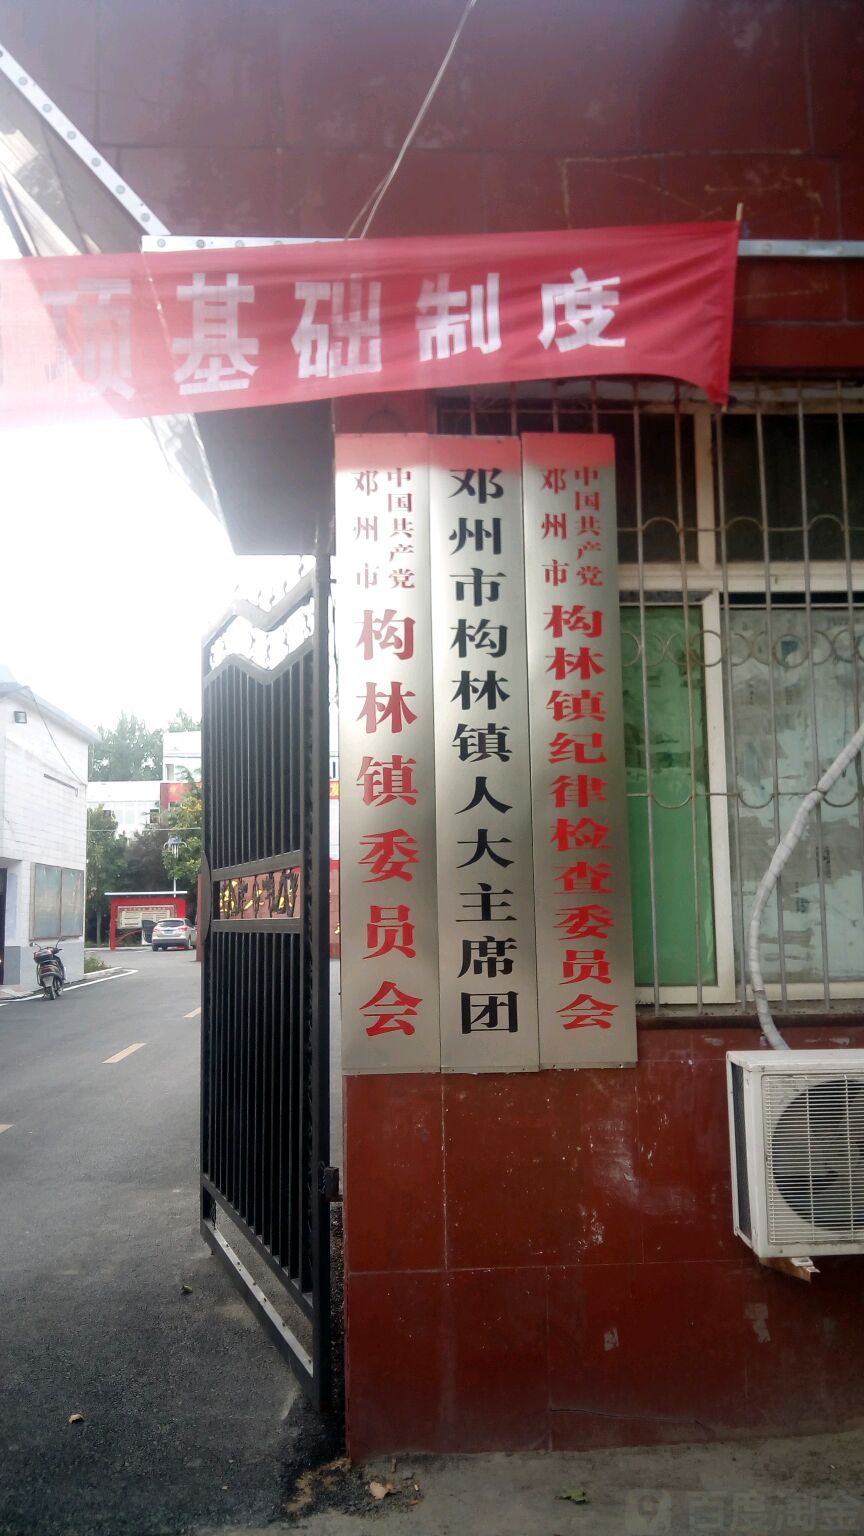 项基础制度
中国共产党
邓州市
构林镇委员会
邓州市构林镇人大主席团
中国共产党
邓州市
构林镇纪律检查委员会
百度淘金